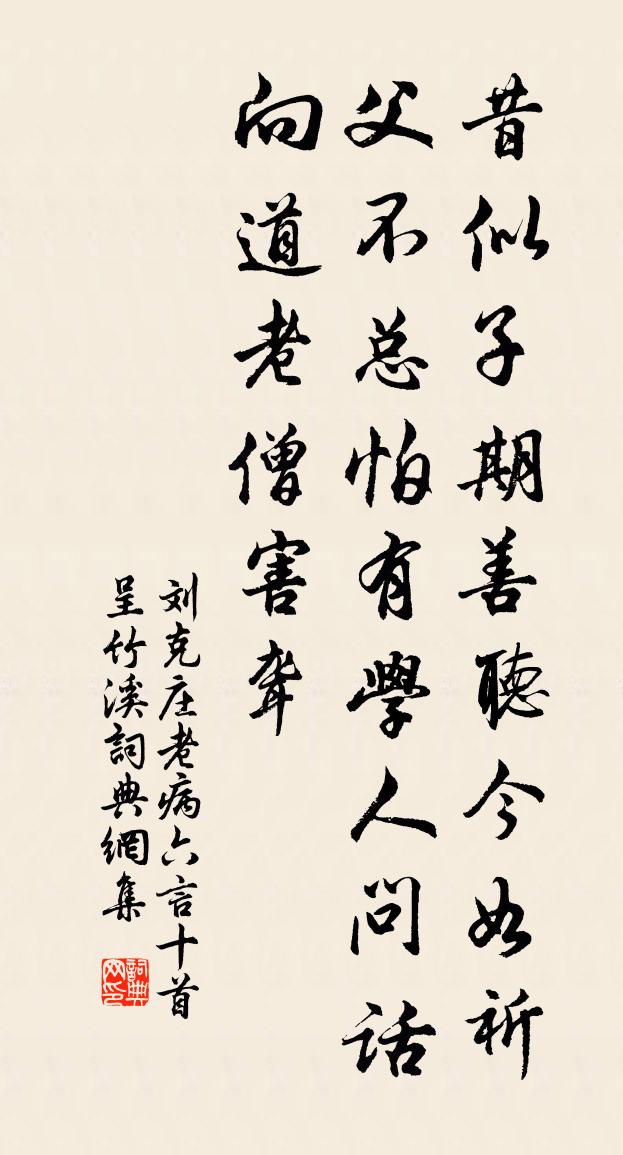 昔似子期善聽今如祈
父不总怕有學人問話
向道老僧害聋
刘克庄老病六言十首
呈竹溪詞典網集
詞典网印